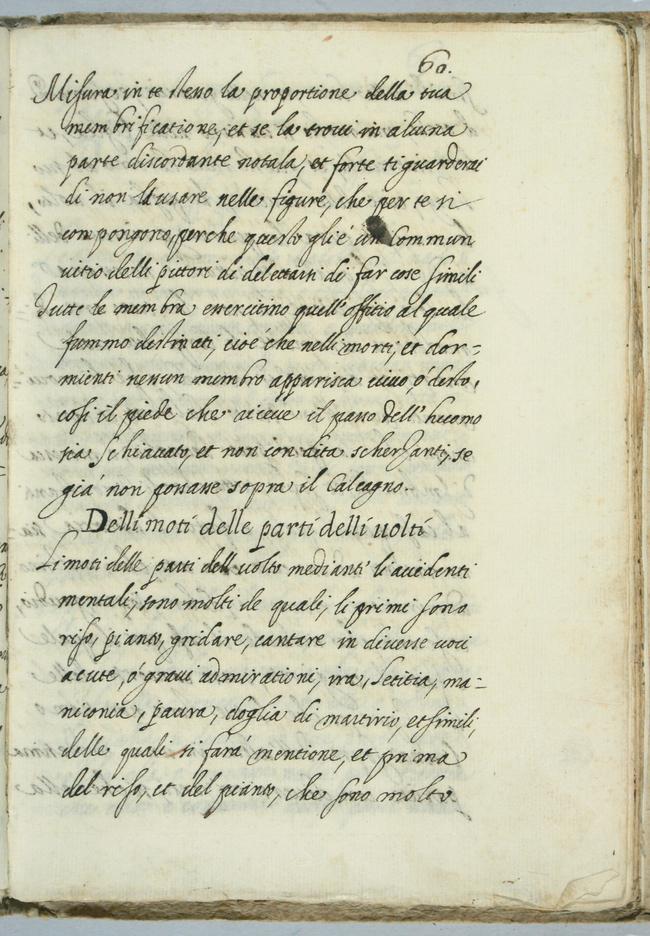 60.
Misura in te stesso la proportione della tua
membrificatione, et se la trovi in alcuna
parte discordante notala, et forte ti guarderai
di non l'usare nelle figure, che per te si
compongono, perche questo gli é un Commun
vitio delli pittori di delettarsi di far cose simili
Tutte le membra essercitino quell'offitio al quale
fummo destinati, cioé che nelli morti, et dor=
mienti nessun membro apparisca vivo, ó desto,
cosi il piede che riceve il passo dell' huomo
sia schiacciato, et non con dita scherzanti, se
giá non possasse sopra il Calcagno.
Delli moti delle parti delli volti
Li moti delle parti dell volto mediantí li accidenti
mentali, sono molti de quali, li primi sono
riso, pianto, gridare, cantare in diverse voci
acute, ó gravi admirationi, ira, letitia, ma=
niconia, paura, doglia di martirio, et simili,
delle quali si fará mentione, et prima
del riso, et del pianto, che sono molto